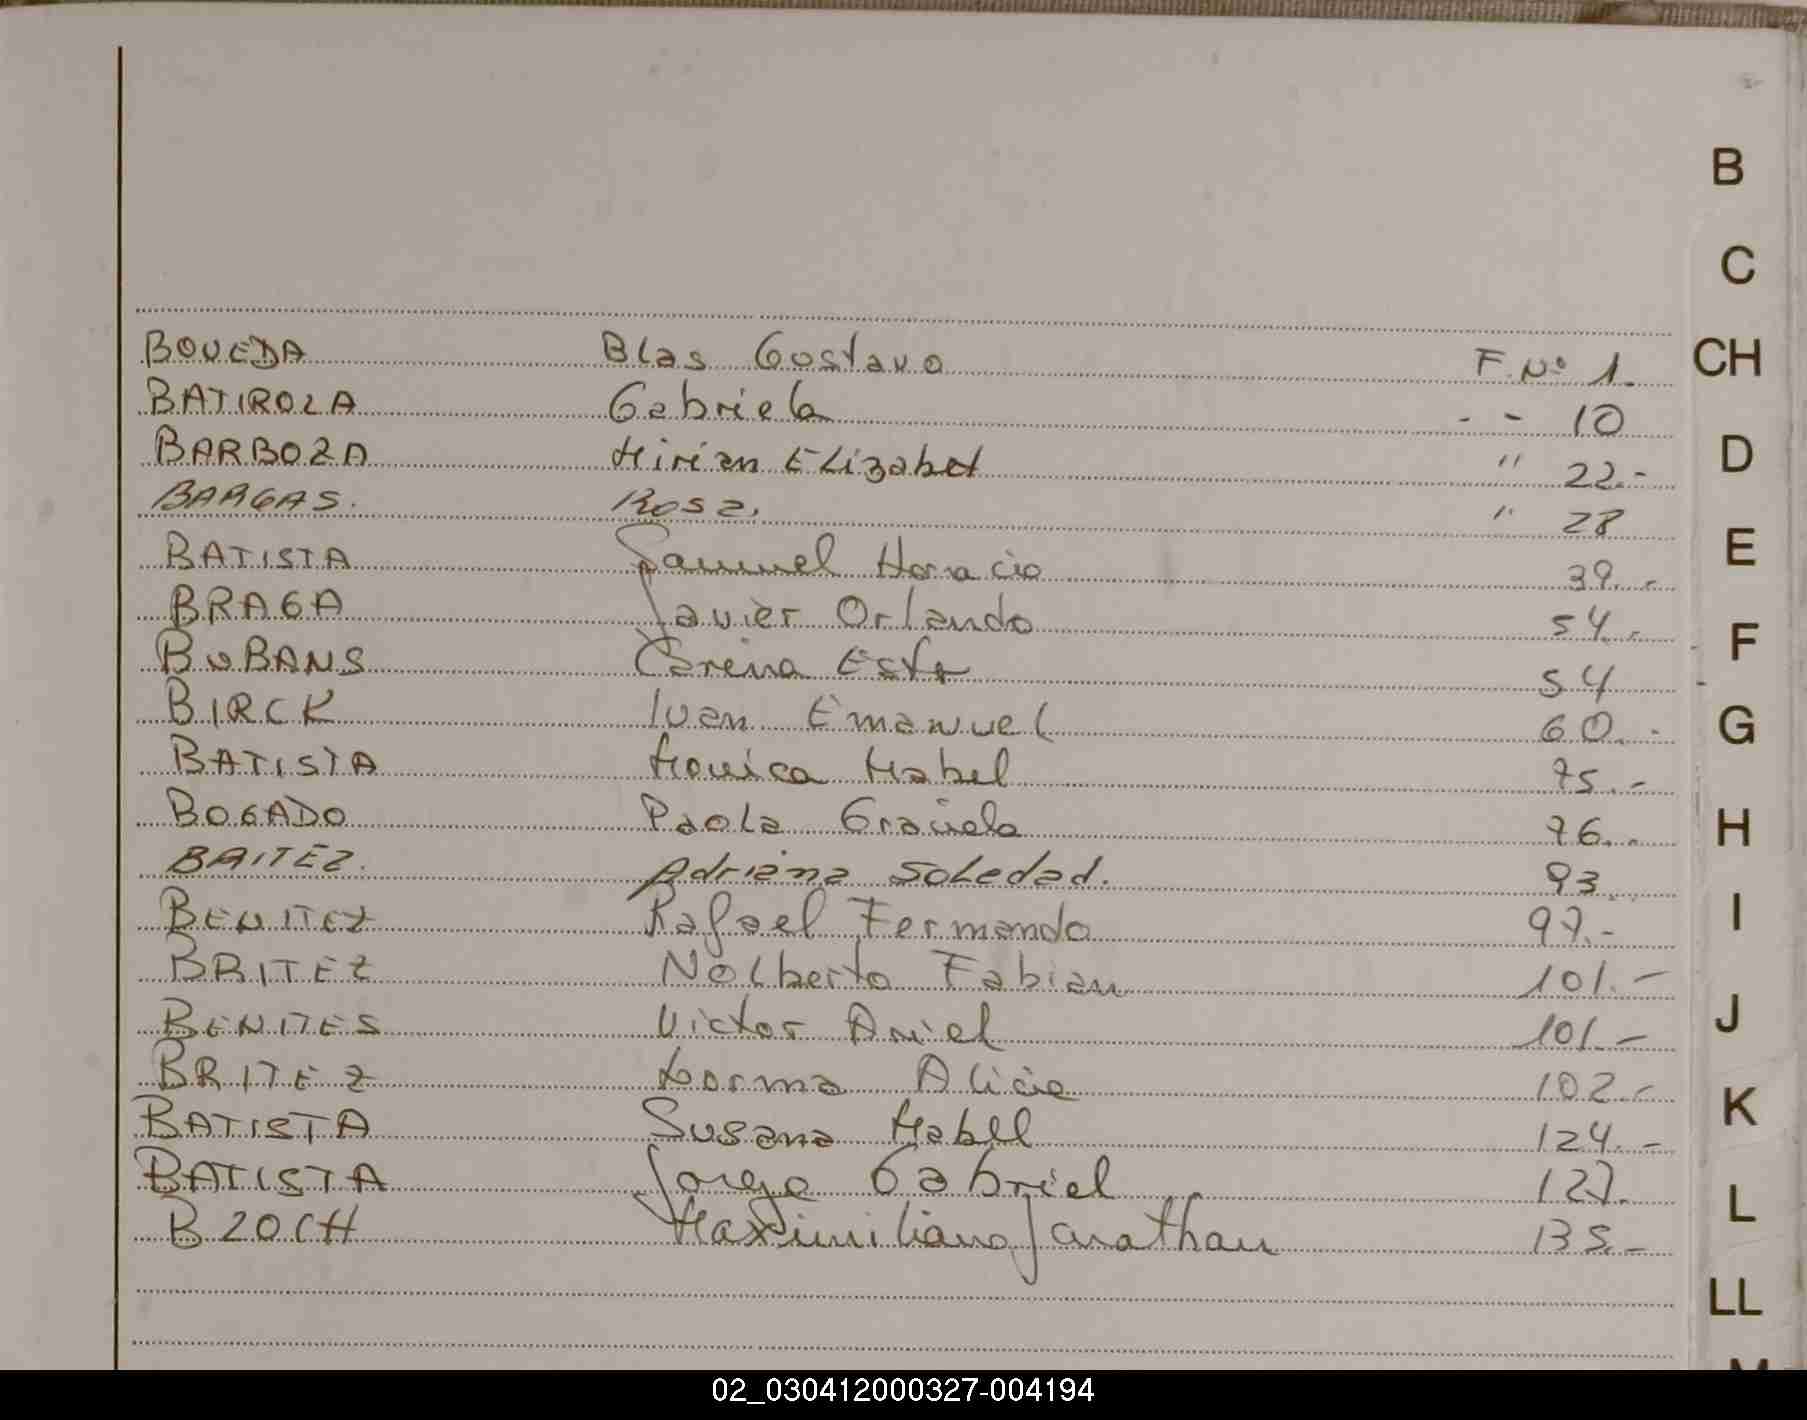 B
C
BOVEDA Blas Gustavo F. Nº 1. CH
BATIROLA Gabriela - - 10
BARBOZA Mirian Elizabet " 22.- D
BARGAS. Rosa. " 28
BATISTA Samuel Horacio 39.- E
BRAGA Javier Orlando 54.-
BUBANS Carina Ester 54 F
BIRCK Ivan Emanuel 60.- G
BATISTA Monica Mabel 75.-
BOGADO Paola Graciela 76.- H
BAITEZ. Adriana Soledad. 93
BENITEZ Rafael Fernando 97.- I
BRITEZ Nolberto Fabian 101.-
BENITES Victor Ariel 101.- J
BRITEZ Norma Alicia 102.-
BATISTA Susana Mabel 124.- K
BATISTA Jorge Gabriel 127.
BZOCH Maximiliano Jonathan 135.- L
LL
M
02_030412000327-004194